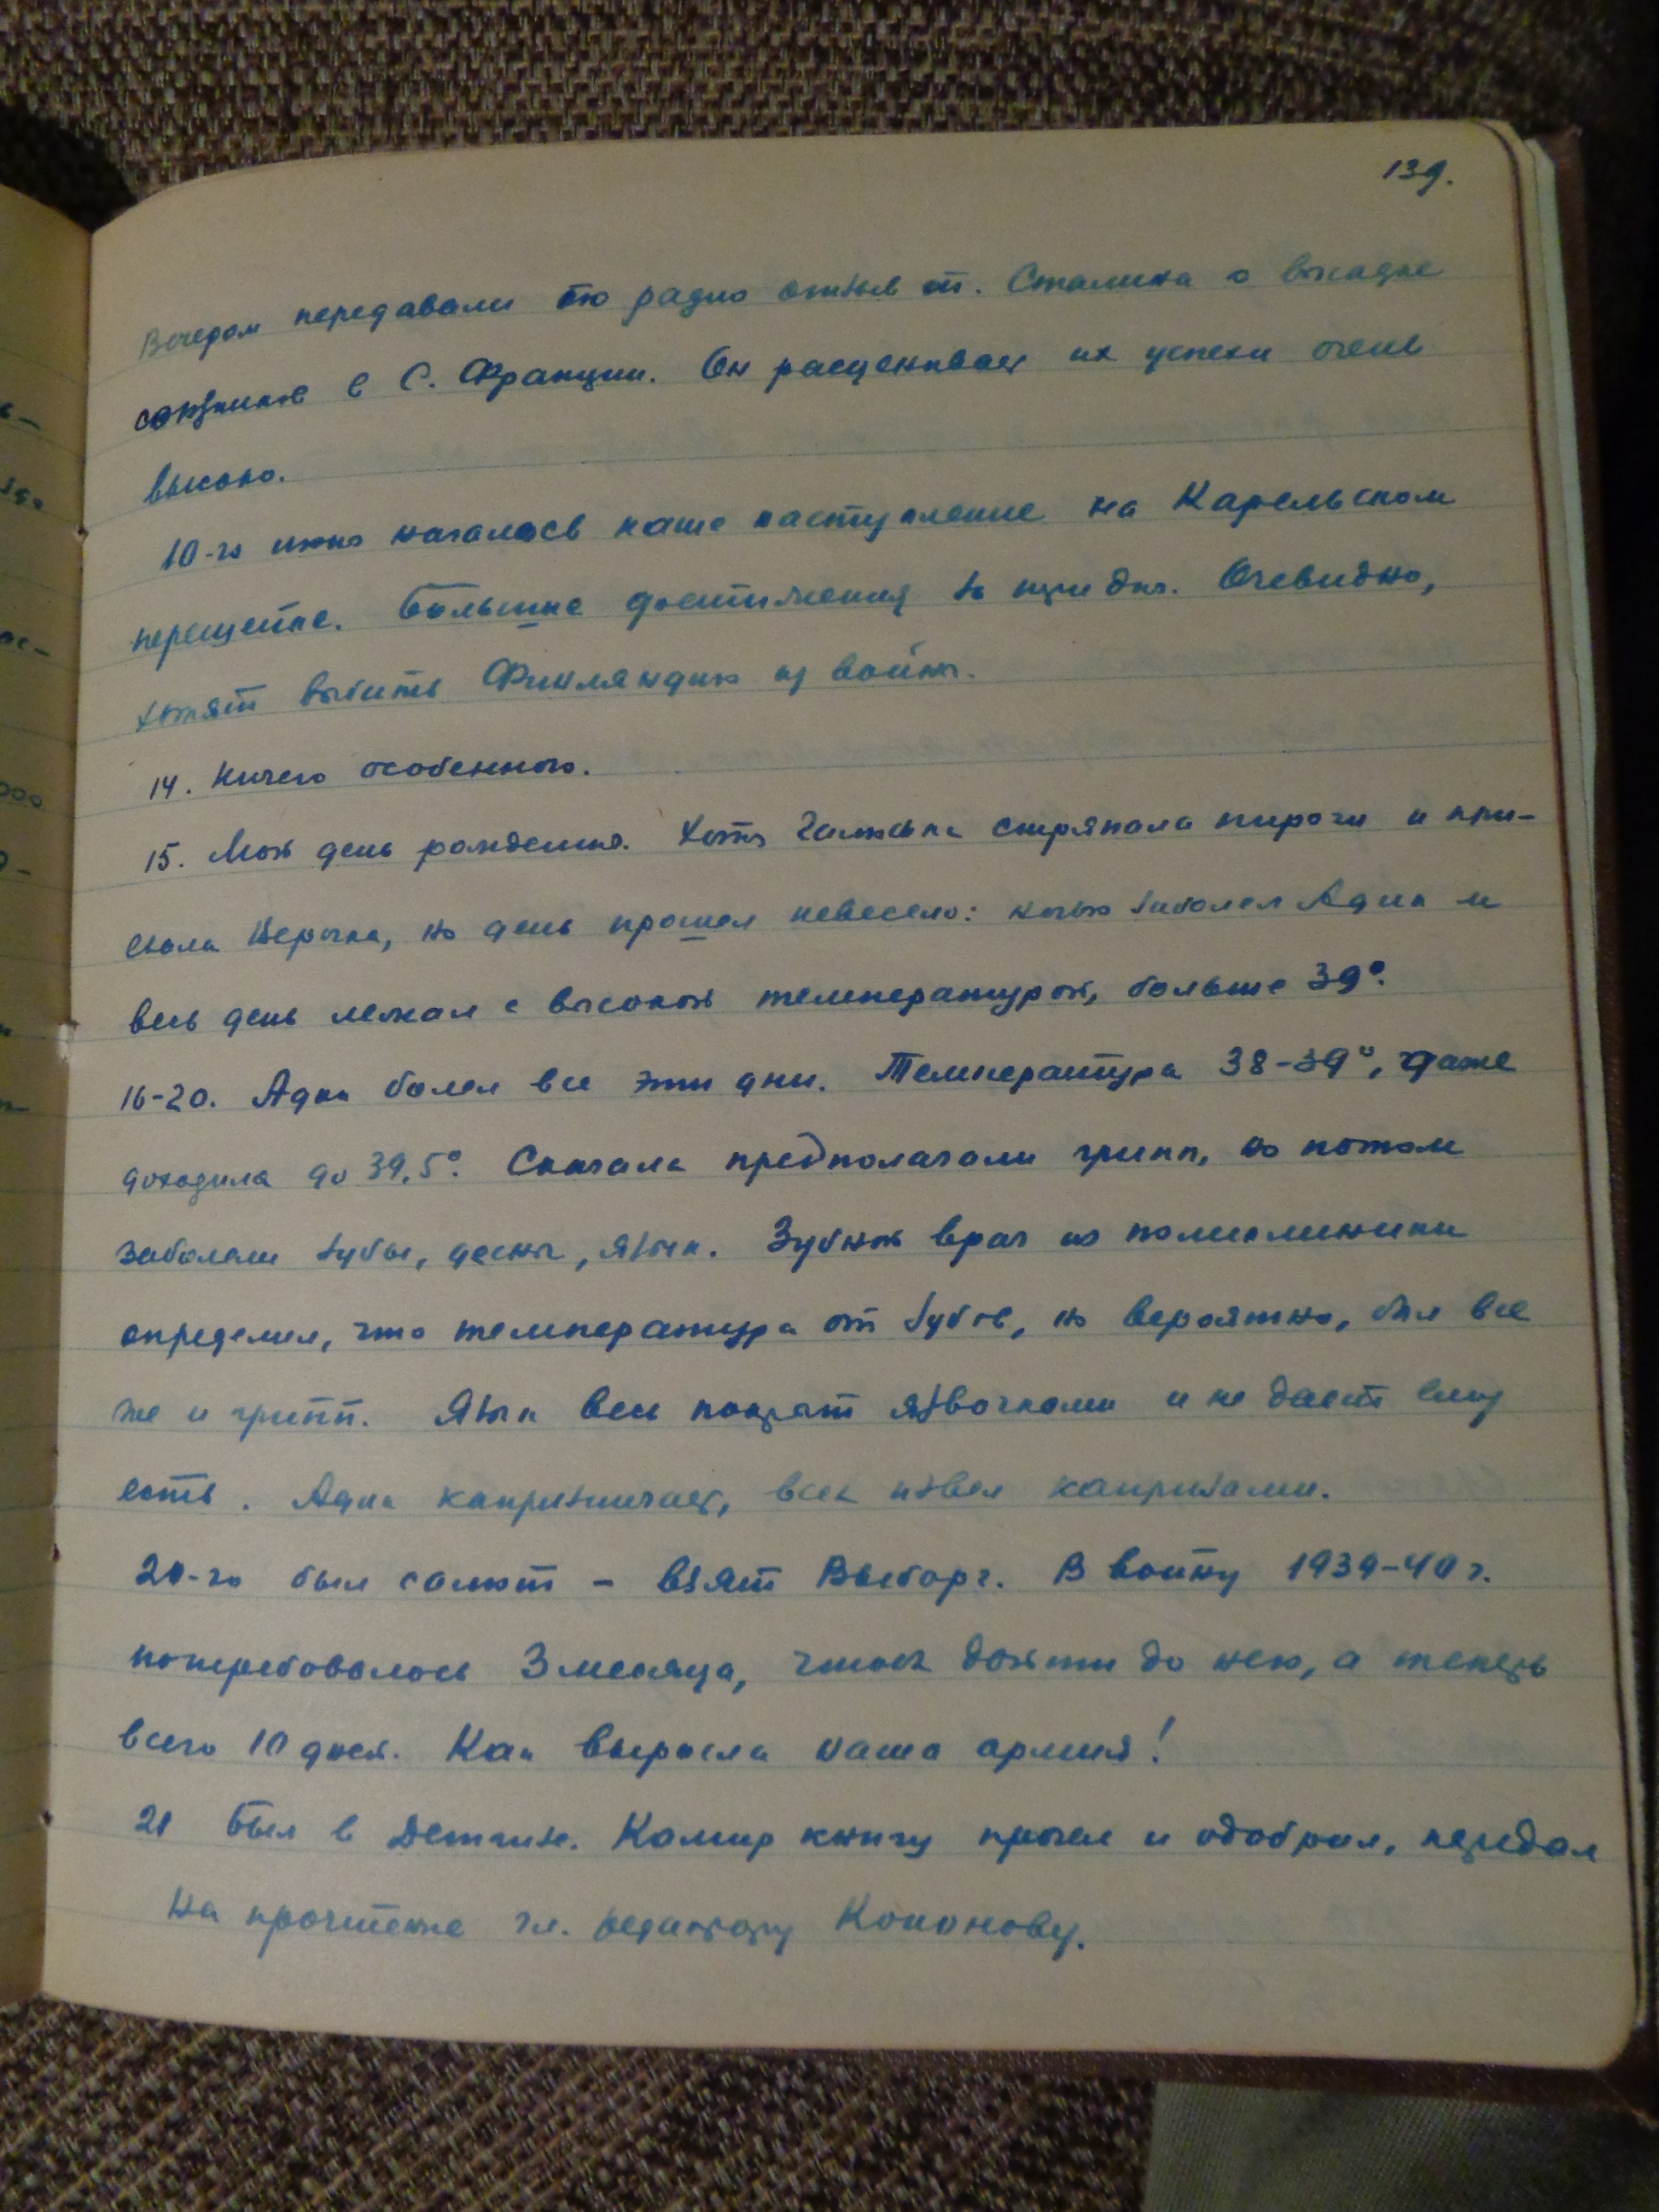 139.
Вечером передавали по радио отзыв т. Сталина о высадке
союзников в С. Франции. Он расценивает их успехи очень
высоко.
10-го июня началось наше наступление на Карельском
перешейке. Большие достижения за три дня. Очевидно,
хотят выбить Финляндию из войны.
14. Ничего особенного.
15. Мой день рождения. Хотя Галюська стряпала пироги и при-
ехала Верочка, но день прошел невесело: ночью заболел Адик и
весь день лежал с высокой температурой, больше 39°.
16-20. Адик болел все эти дни. Температура 38-39°, даже
доходила до 39,5°. Сначала предполагали грипп, но потом
заболели зубы, десны, язык. Зубной врач из поликлиники
определил, что температура от зубов, но вероятно, был все
же и грипп. Язык весь покрыт язвочками и не дает ему
есть. Адик капризничает, всех извел капризами.
20-го был салют - взят Выборг. В войну 1939-40 г.
потребовалось 3 месяца, чтобы дойти до него, а теперь
всего 10 дней. Как выросла наша армия!
21 Был в Детгизе. Камир книгу прочел и одобрил, передал
на прочтение гл. редактору Кононову.